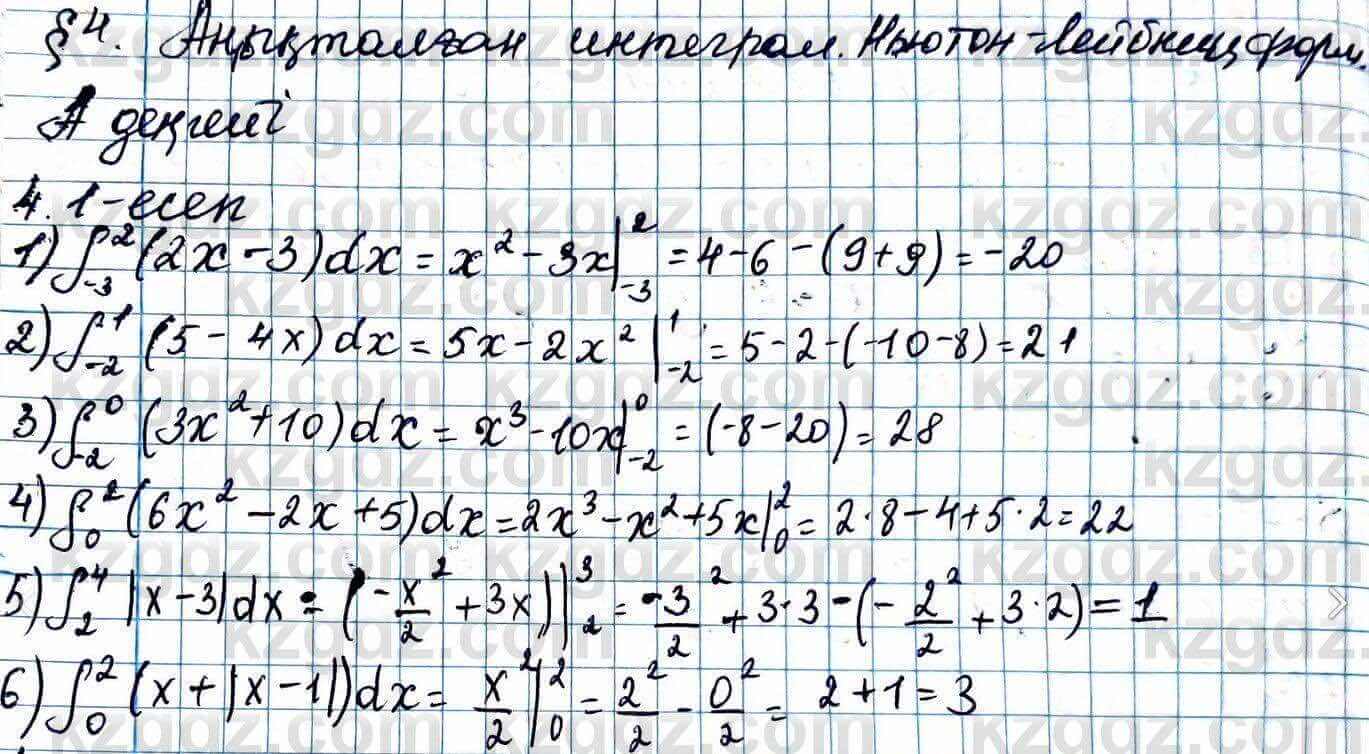 §4. Анықталған интеграл. Ньютон-Лейбниц форм.
А деңгейі
4.1-есеп
1) ∫₋₃² (2x-3)dx = x²-3x|₋₃² = 4-6-(9+9) = -20
2) ∫₋₂¹ (5-4x)dx = 5x-2x²|₋₂¹ = 5-2-(-10-8) = 21
3) ∫₋₂⁰ (3x²+10)dx = x³-10x|₋₂⁰ = (-8-20) = 28
4) ∫₀² (6x²-2x+5)dx = 2x³-x²+5x|₀² = 2·8-4+5·2 = 22
5) ∫₂⁴ |x-3|dx = (-x²/2+3x)|₂³ = -3²/2+3·3-(-2²/2+3·2) = 1
6) ∫₀² (x+|x-1|)dx = x²/2|₀² = 2²/2 - 0²/2 = 2+1 = 3
kzgdz.com